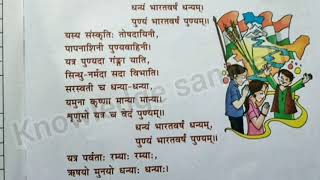 धन्यं भारतवर्षं धन्यम्,
पुण्यं भारतवर्षं पुण्यम्॥
यस्य संस्कृतिः तोषदायिनी,
पापनाशिनी पुण्यवाहिनी।
यत्र पुण्यदा गङ्गा याति,
सिन्धु-नर्मदा सदा विभाति।
सरस्वती च धन्या-धन्या,
यमुना कृष्णा मान्या मान्या।
शृणुमो यत्र च वेदं पुण्यम्॥
धन्यं भारतवर्षं धन्यम्,
पुण्यं भारतवर्षं पुण्यम्॥
यत्र पर्वताः रम्याः रम्याः,
ऋषयो मुनयो धन्याः धन्याः।
Knowledge san